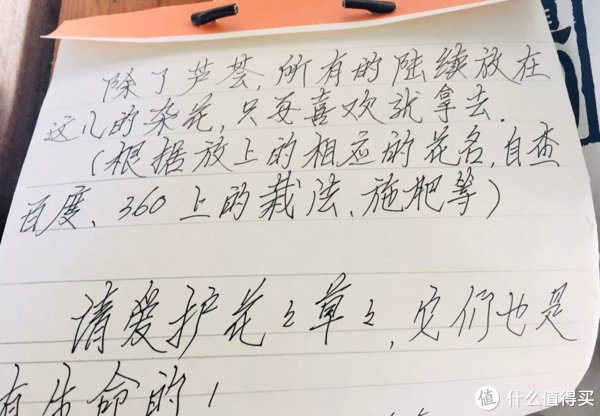 除了芦荟，所有的陆续放在
这儿的杂花，只要喜欢就拿去．
（根据放上的相应的花名，自查
百度、360上的栽法、施肥等）
请爱护花々草々，它们也是
有生命的！
值 什么值得买